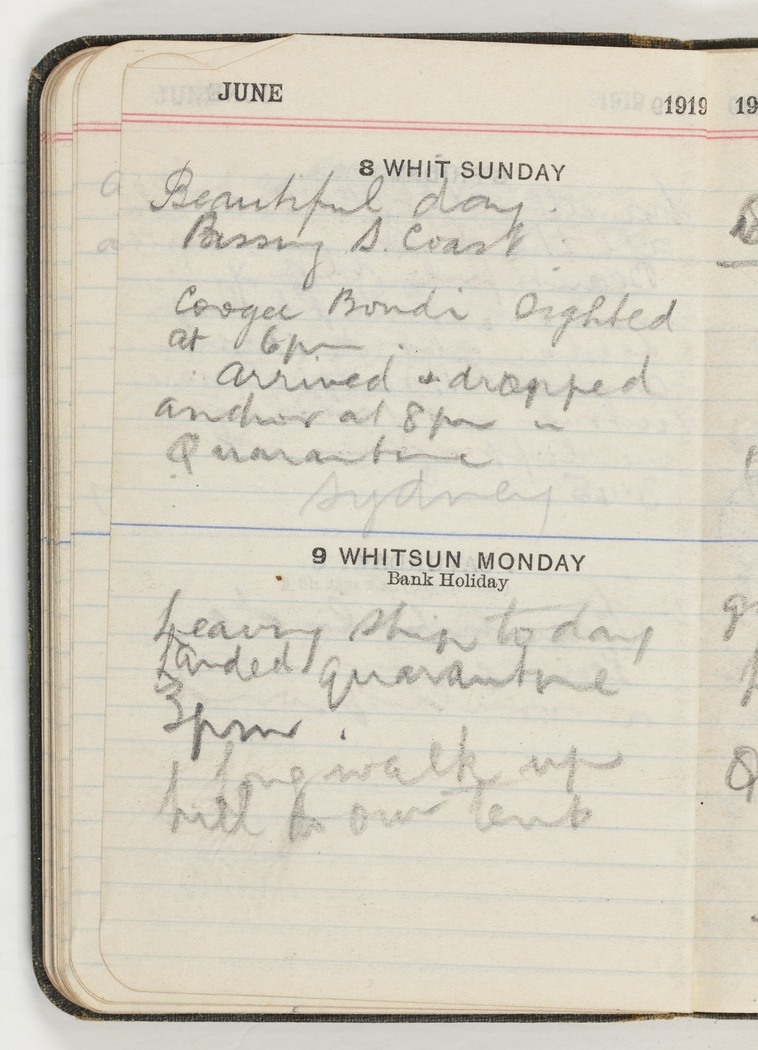 JUNE 1919 19
8 WHIT SUNDAY
Beautiful day.
Passing S. Coast
Coogee Bondi Sighted
at 6pm.
Arrived & dropped
anchor at 8pm in
Quarantine
Sydney
9 WHITSUN MONDAY
Bank Holiday
Leaving ship today
Landed quarantine
3pm.
long walk up
hill to our tent